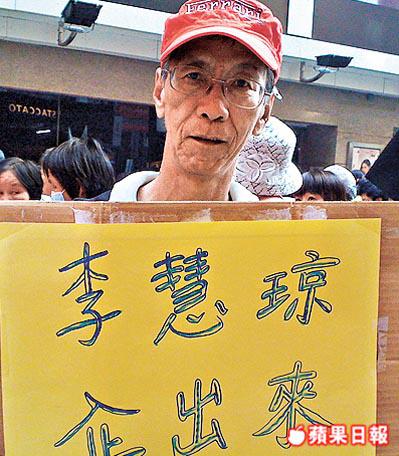 Ferrari
STACCATO
李慧琼
企出來
蘋果日報